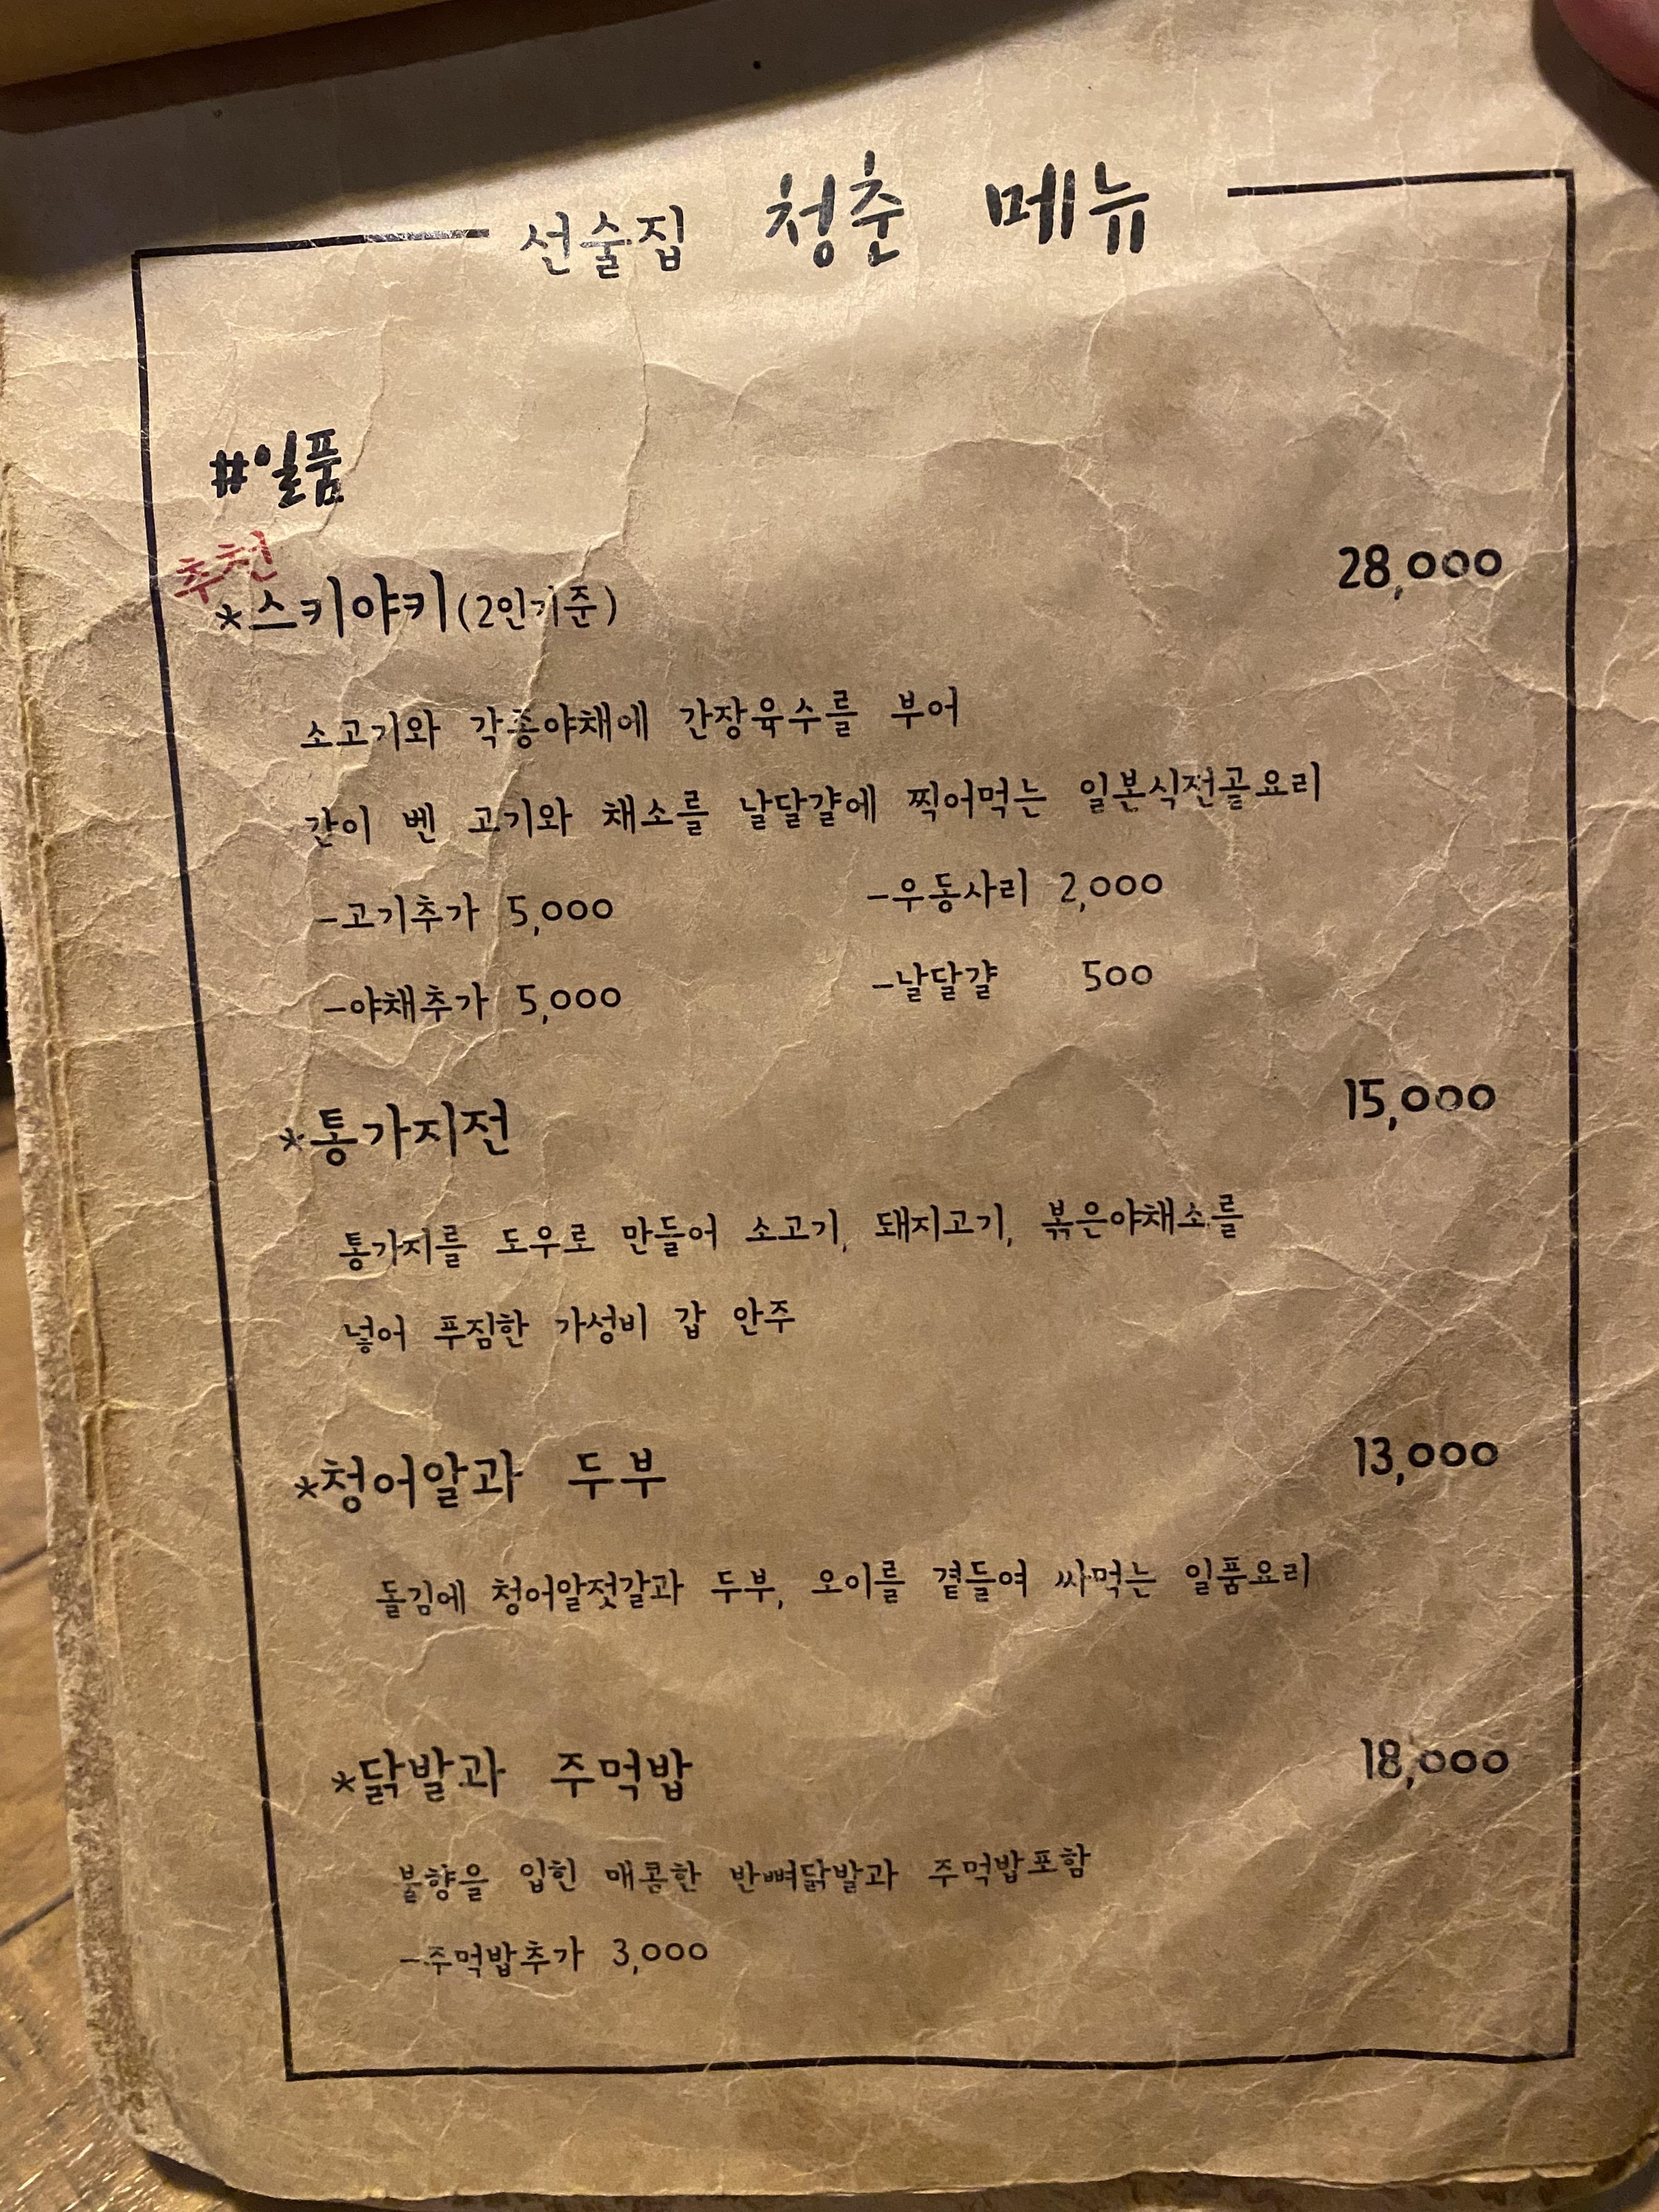 선술집 청춘 메뉴
#일품
추천
*스키야키(2인기준) 28,000
소고기와 각종야채에 간장육수를 부어
간이 벤 고기와 채소를 날달걀에 찍어먹는 일본식전골요리
-고기추가 5,000 -우동사리 2,000
-야채추가 5,000 -날달걀 500
*통가지전 15,000
통가지를 도우로 만들어 소고기, 돼지고기, 볶은야채소를
넣어 푸짐한 가성비 갑 안주
*청어알과 두부 13,000
돌김에 청어알젓갈과 두부, 오이를 곁들여 싸먹는 일품요리
*닭발과 주먹밥 18,000
불향을 입힌 매콤한 반뼈닭발과 주먹밥포함
-주먹밥추가 3,000